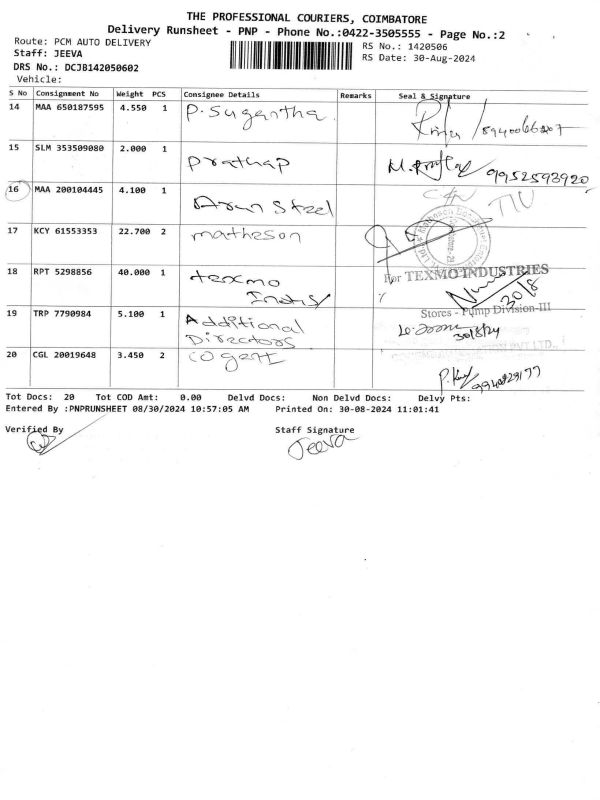 THE PROFESSIONAL COURIERS, COIMBATORE
Delivery Runsheet - PNP - Phone No.:0422-3505555 - Page No.:2
Route: PCM AUTO DELIVERY RS No.: 1420506
Staff: JEEVA RS Date: 30-Aug-2024
DRS No.: DCJB142050602
Vehicle:
S No Consignment No Weight PCS Consignee Details Remarks Seal & Signature
14 MAA 650187595 4.550 1 P. Sugantha.
15 SLM 353509080 2.000 1 Prathap 9952593920
16 MAA 200104445 4.100 1 Arun Steel
17 KCY 61553353 22.700 2 matheson
18 RPT 5298856 40.000 1 texmo
Indus
For TEXMO INDUSTRIES
30/8
Stores - Pump Division-III
19 TRP 7790984 5.100 1 Additional
Directors
30/8/24
20 CGL 20019648 3.450 2 cogent
Tot Docs: 20 Tot COD Amt: 0.00 Delvd Docs: Non Delvd Docs: Delvy Pts:
Entered By :PNPRUNSHEET 08/30/2024 10:57:05 AM Printed On: 30-08-2024 11:01:41
Verified By Staff Signature
Jeeva